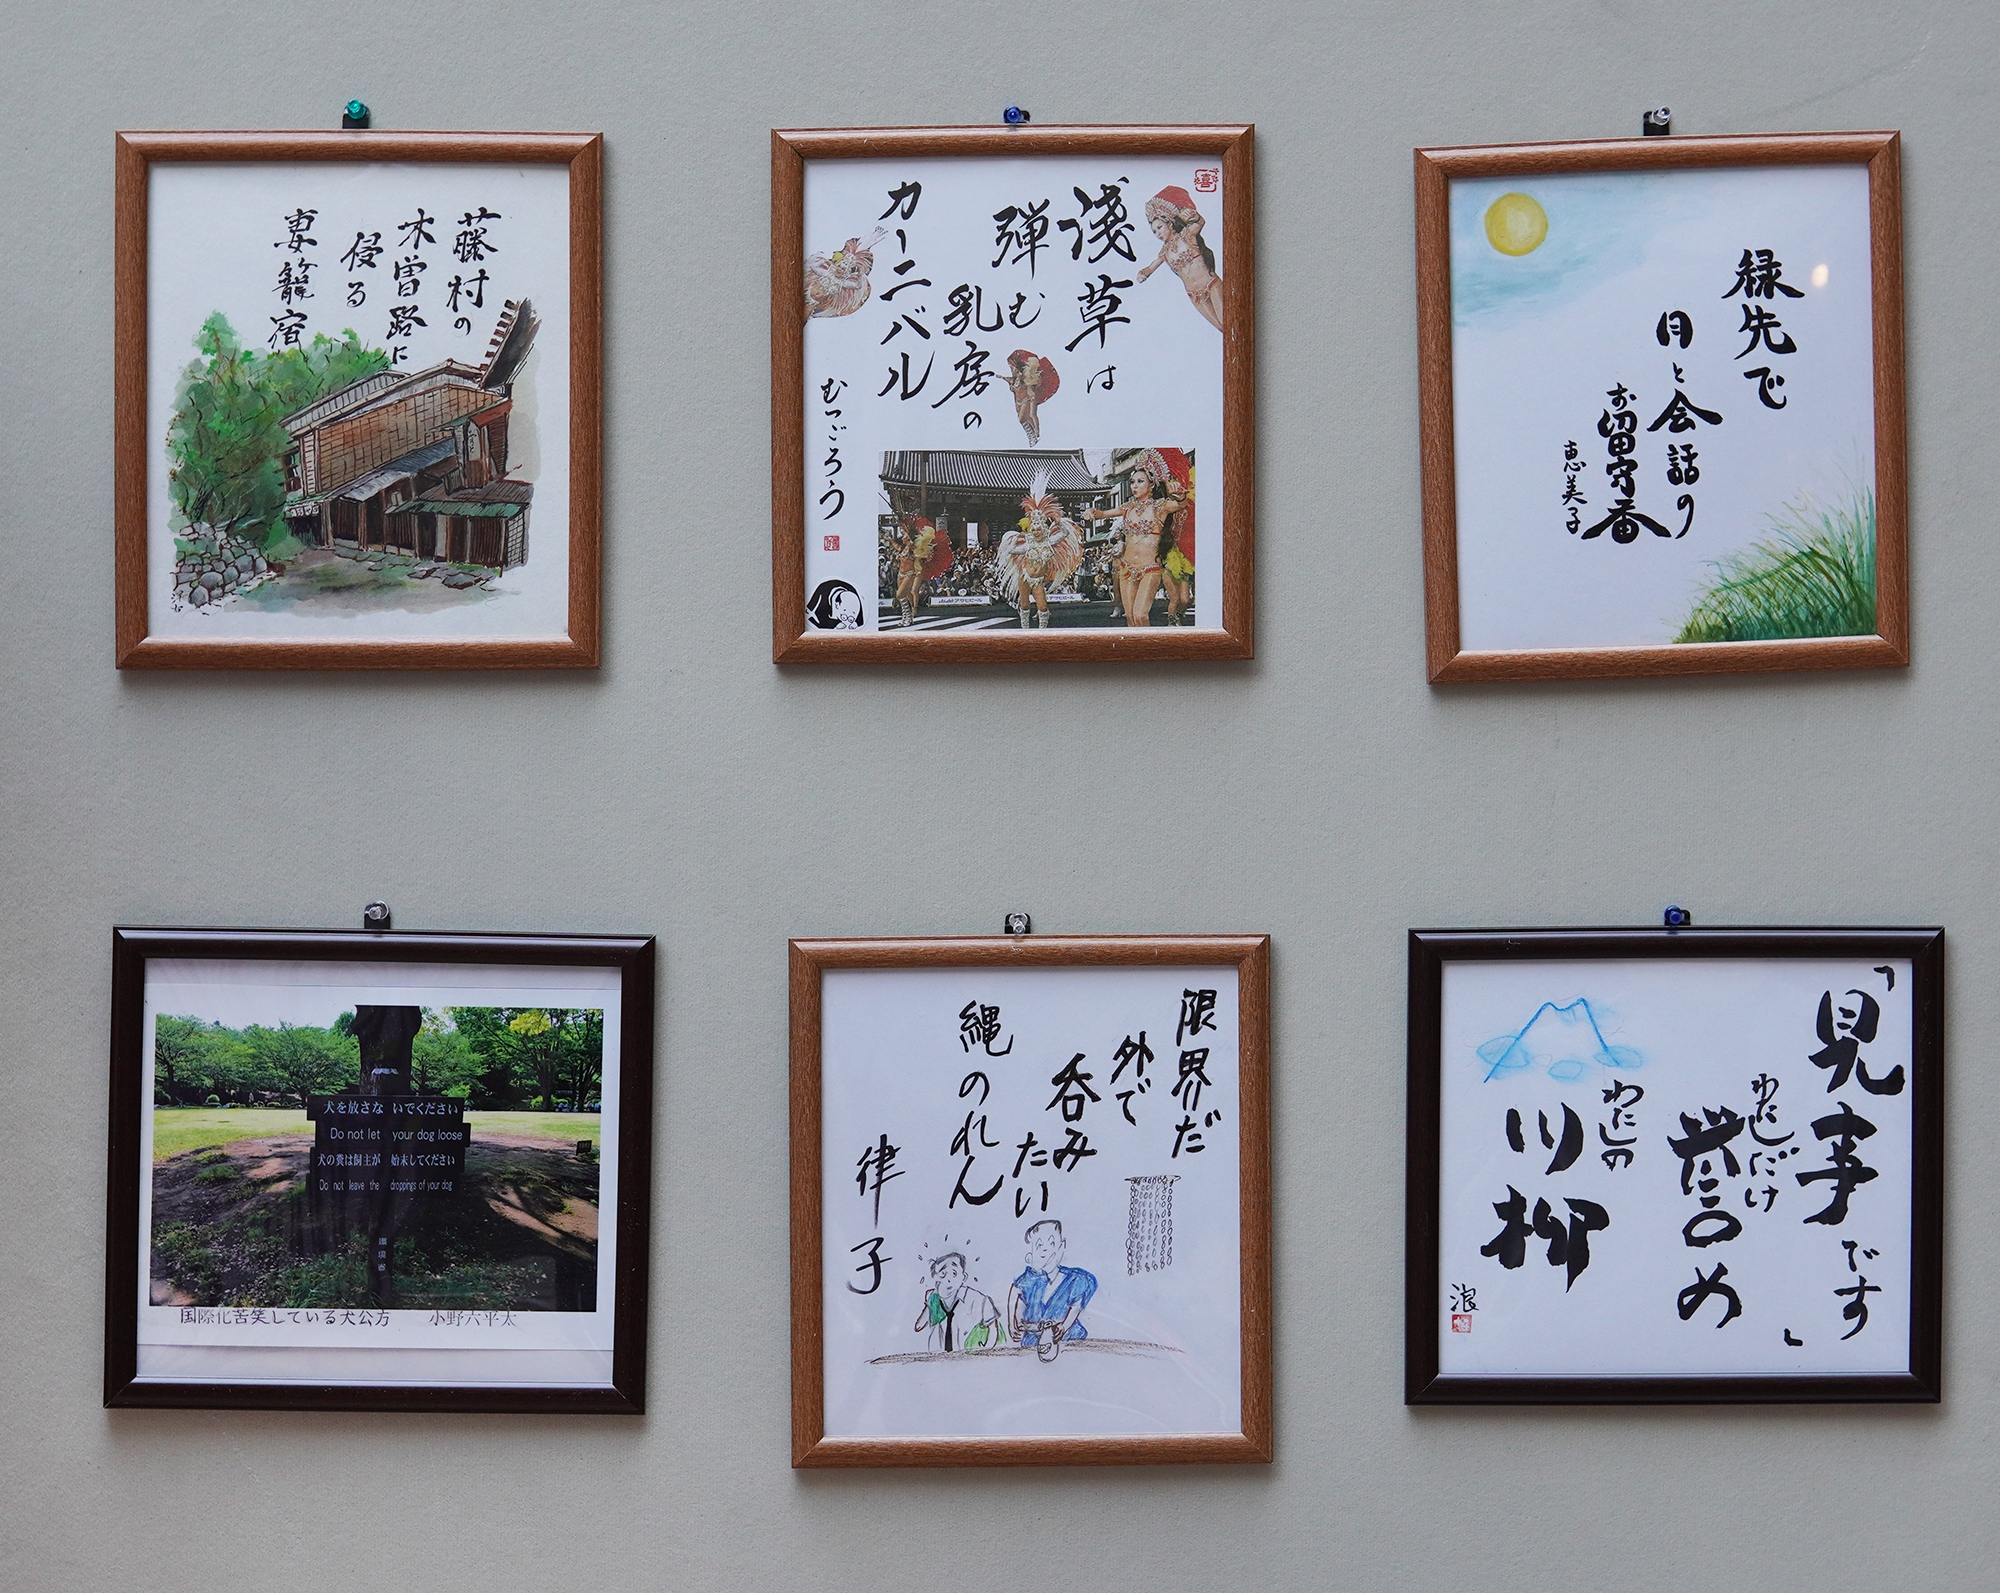 藤村の
木曽路に
侵る
妻籠宿
浅草は
弾む
乳房の
カーニバル
むつごろう
縁先で
月と会話の
お留守番
恵美子
犬を放さないでください
Do not let your dog loose
犬の糞は飼主が始末してください
Do not leave the droppings of your dog
環境省
国際化苦笑している犬公方 小野六平太
限界だ
外で
呑み
たい
縄のれん
律子
「見事です
わたしだけ
誉め」
わたしの
川柳
浪